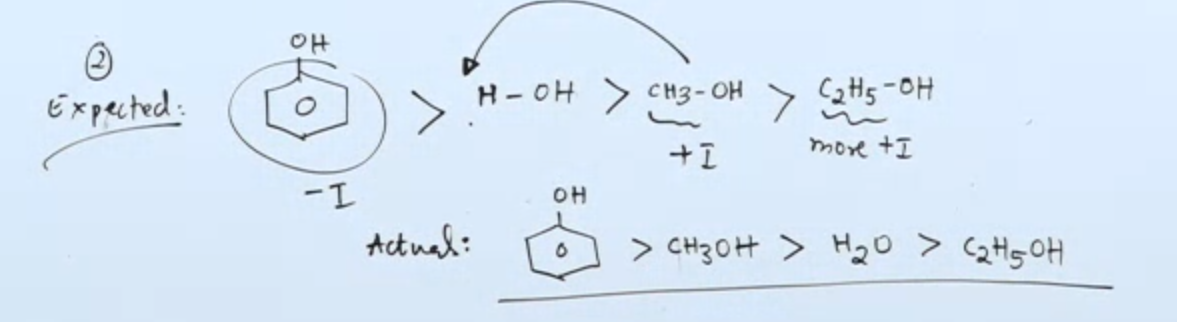 ②
OH
Expected: O > H-OH > CH3-OH > C2H5-OH
+I more +I
-I
OH
Actual: O > CH3OH > H2O > C2H5OH